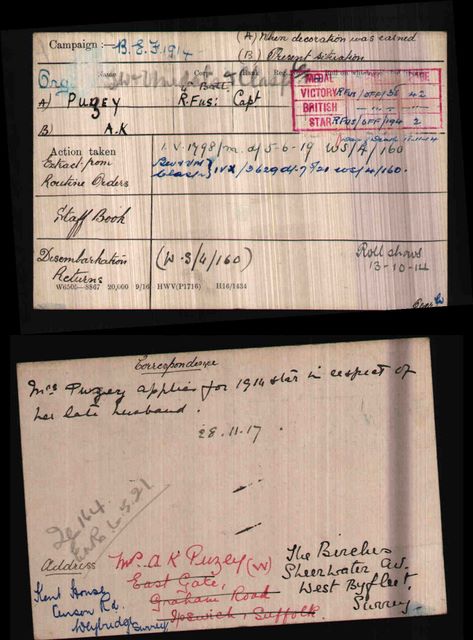 (A) When decoration was earned
Campaign :— B.E.F. 1914
(B) Present situation
Name Corps Rank
4 Batt.
A) Puzey R. Fus: Capt
MEDAL PAGE
VICTORY R FUS/OFF/ 42
BRITISH — " — " —
STAR R FUS/OFF/ 2
B) A.K
Action taken
Extract from
Routine Orders
1. V. 1798/m. d/ 5-6-19 WS/4/160
IVX/ 3629 d/ WS/4/160.
Staff Book
Disembarkation
Returns
(W.S/4/160)
Roll shows
13-10-14
W6505—8867 20,000 9/16 HWV(P1716) H16/1434
Correspondence
Mrs Puzey applies for 1914 star in respect of
her late husband.
28.11.17.
6.5.21
Address
Mrs. A K Puzey (W)
East Gate,
Graham Road
Ipswich, Suffolk.
The Birches
Sheerwater Av.
West Byfleet.
Surrey
Kent House
Rd.
Weybridge Surrey